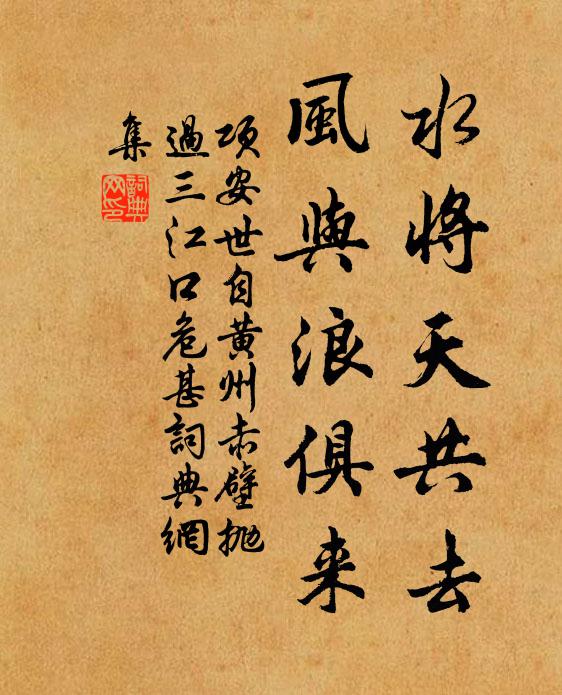 水將天共去
風與浪俱来
項安世自黄州赤壁抛
過三江口危甚詞典網
集
詞典
网印